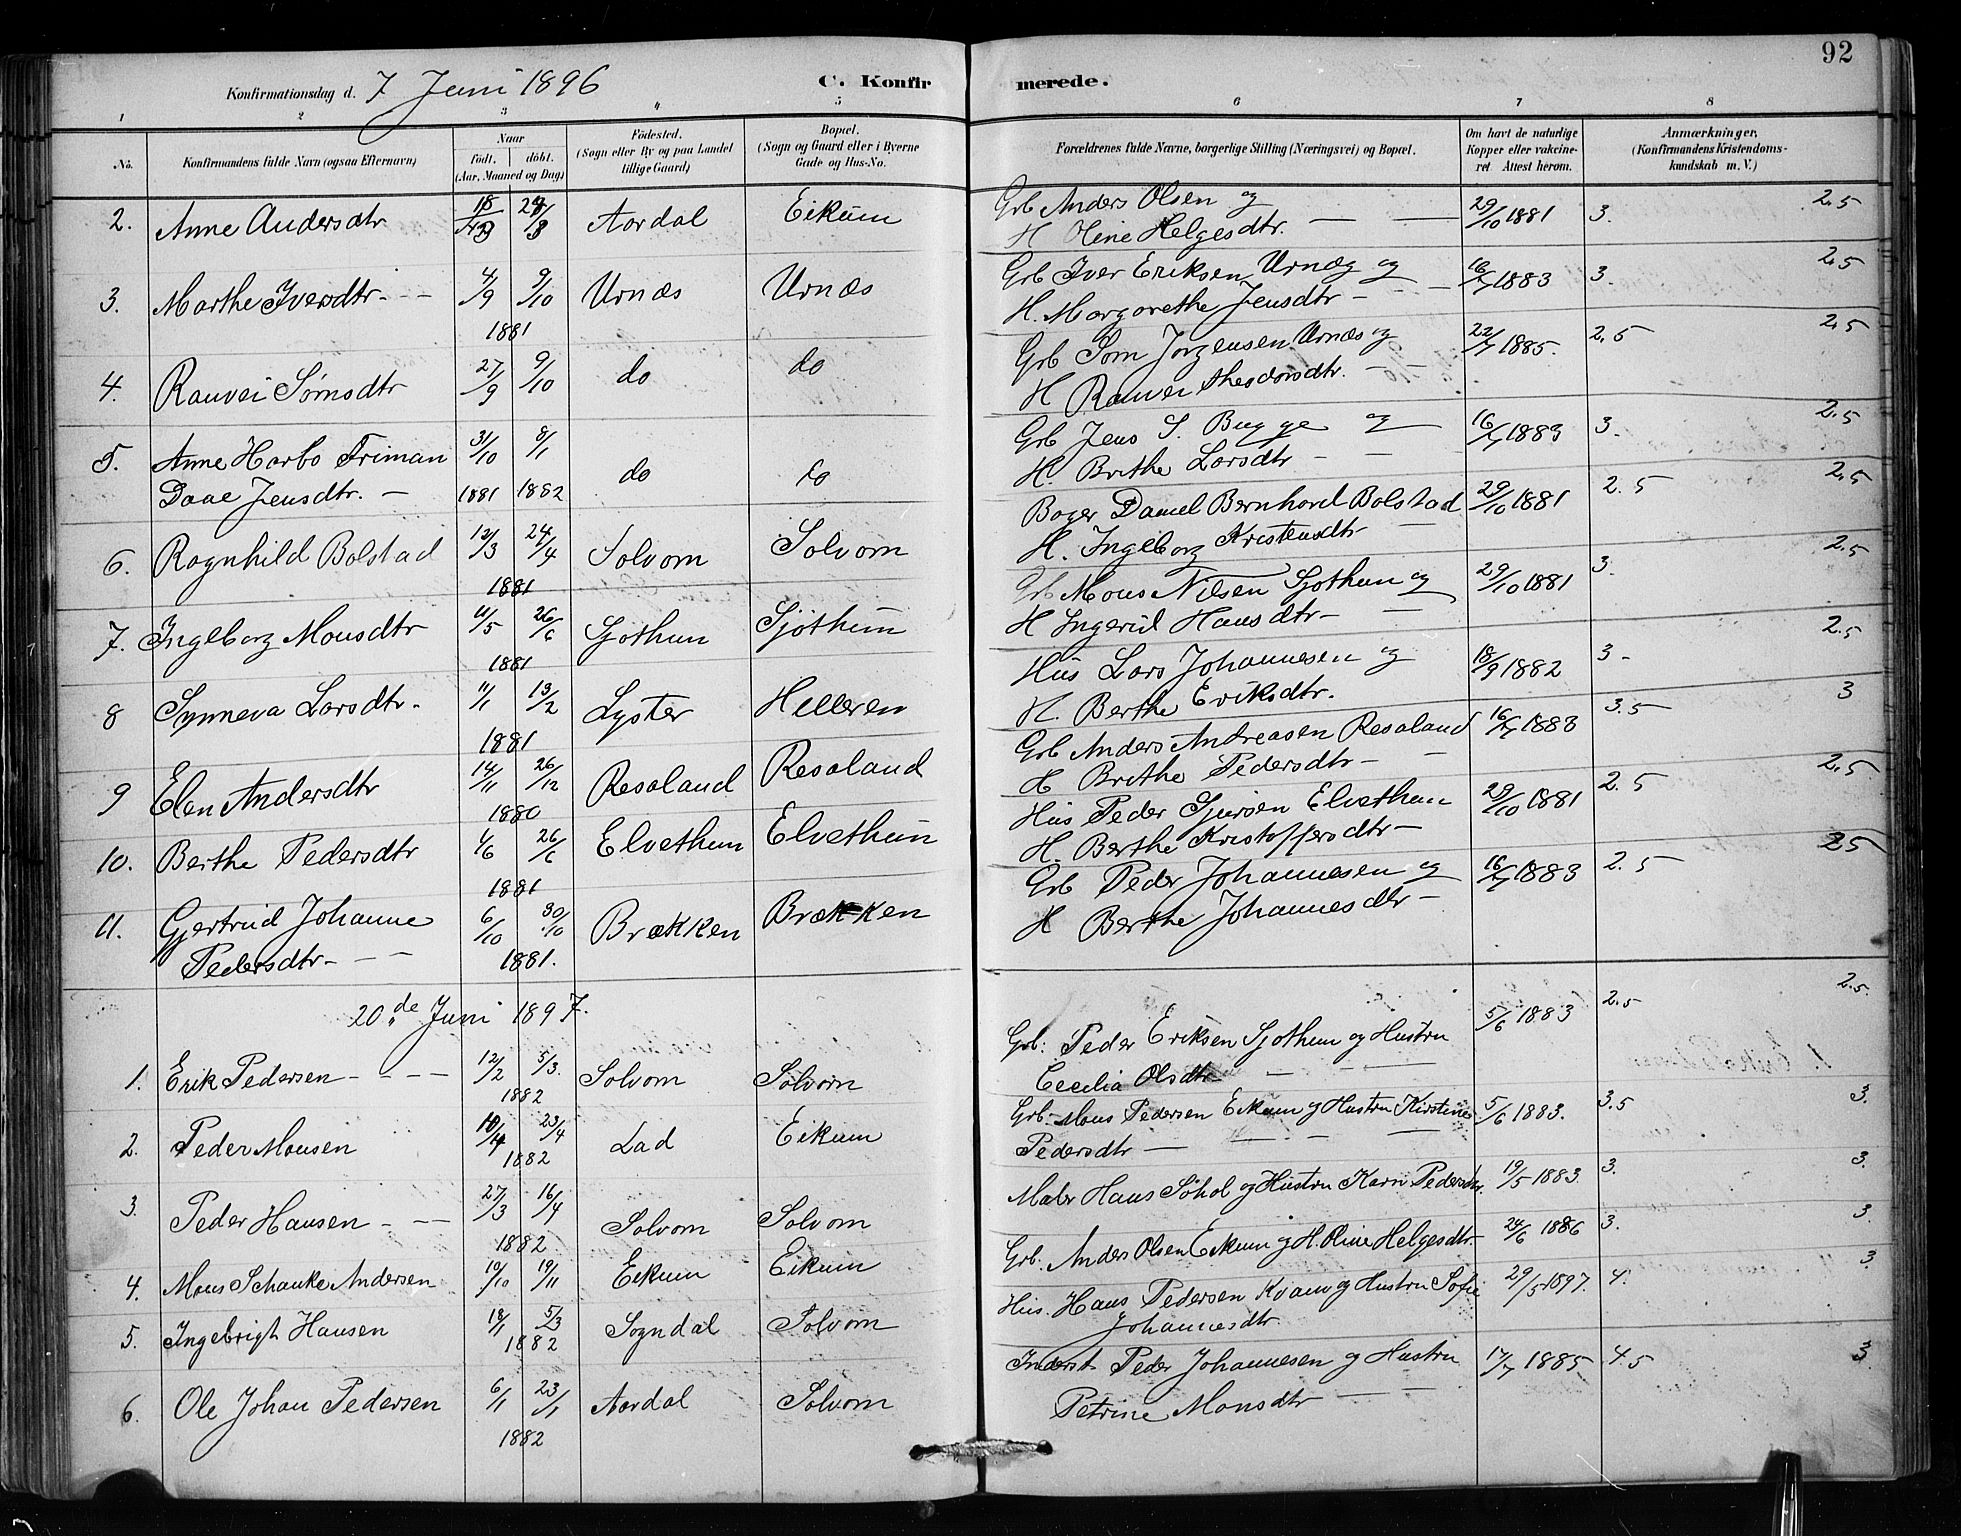 92
Konfirmationsdag d. 7 Juni 1896 C. Konfir merede.
1 2 3 4 5 6 7 8
No. Konfirmandens fulde Navn (ogsaa Efternavn) Naar født. døbt. (Aar, Maaned og Dag) Fødested. (Sogn eller By og paa Landet tillige Gaard) Bopæl. (Sogn og Gaard eller i Byerne Gade og Hus-No. Forældrenes fulde Navne, borgerlige Stilling (Næringsvei) og Bopæl. Om havt de naturlige Kopper eller vakcineret Attest herom. Anmærkninger, (Konfirmandens Kristendomskundskab m. V.)
2. Anne Andersdtr Aardal Eikum Grb Anders Olsen og 29/10 1881 3. 2.5
H Oline Helgesdtr.
3. Marthe Iversdtr 4/9 9/10 Urnæs Urnæs Grb Iver Eriksen Urnæs og 16/7 1883 3. 2.5
1881 H. Margarethe Jensdtr
4. Ranvei Sørnsdtr 27/9 9/10 do do Grb Sørn Jørgensen Urnæs og 22/7 1885. 2.5 2.5
H Ranvei Thesdorsdtr.
5. Anne Harbo Friman 31/10 8/1 do do Grb Jens S. Bugge og 16/7 1883 3. 2.5
Daae Jensdtr. 1881 1882 H. Brithe Larsdtr
6. Ragnhild Bolstad 12/3 24/4 Solvorn Solvorn Bager Daniel Bernhard Bolstad 29/10 1881 2.5 2.5
1881 H. Ingeborg Kristensdtr
7. Ingeborg Monsdtr 4/5 26/6 Sjøthun Sjøthun Grb Mons Nilsen Sjøthun og 29/10 1881 3. 2.5
1881 H Ingerid Hansdtr
8 Synneva Larsdtr 11/1 13/2 Lyster Helleren Hus Lars Johannesen og 18/9 1882 3 2.5
1881 H. Berthe Eriksdtr.
9 Elen Andersdtr 14/11 26/12 Resaland Resaland Grb Anders Andreasen Resaland 16/7 1883 3.5 3
1880 H Brithe Pedersdtr
10. Berthe Pedersdtr 4/6 26/6 Elvethun Elvethun Hus Peder Sjursen Elvethun 29/10 1881 2.5 2.5
1881 H. Berthe Kristoffersdtr
11. Gjertrud Johanne 6/10 30/10 Brækken Brækken Grb Peder Johannesen og 16/7 1883 2.5 25
Pedersdtr 1881. H Berthe Johannesdtr
20de Juni 1897.
1. Erik Pedersen 12/2 5/3. Solvorn Solvorn Grb: Peder Eriksen Sjøthun og Hustru 5/6 1883 2.5 2.5.
1882 Cecilia Olsdtr
2. Peder Monsen 10/4 23/4 Lad Eikum Grb Mons Pedersen Eikum og Hustru Kirstine 5/6 1883. 3.5 3.
1882 Pedersdtr
3. Peder Hansen 27/3 16/4 Solvorn Solvorn Maler Hans Søhol og Hustru Karn Pedersdtr. 19/5 1883. 3. 3.
1882
4. Mons Schanke Andersen 10/10 19/11 Eikum Eikum Grb. Anders Olsen Eikum og H. Oline Helgesdtr. 24/6 1886 3. 3.
5. Ingebrigt Hansen 18/1 5/3 Sogndal Solvorn Hus. Hans Pedersen Kvam og Hustru Sofie 29/5 1897. 4. 3.
1882 Johannesdtr
6. Ole Johan Pedersen 6/1 23/1 Aardal Solvorn Inderst Peder Johannesen og Hustru 17/7 1885 4.5 3
1882 Petrine Monsdtr